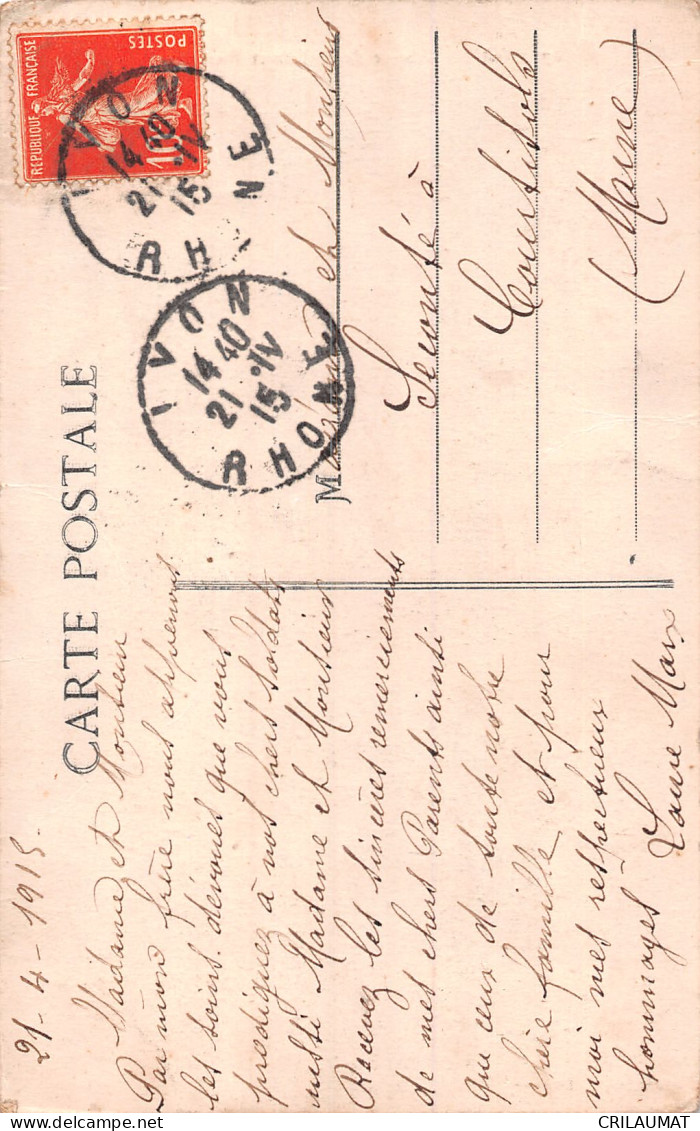 CARTE POSTALE
REPUBLIQUE FRANÇAISE
POSTES
10c
YVON
14 10
21 IV
15
RHONE
IVON
14 40
21 IV
15
RHONE
21-4-1915.
Madame et Monsieur
Par mon frère nous apprenons
les soins dévoués que vous
prodiguez à nos chers soldats
aussi Madame et Monsieur
Recevez les sincères remerciements
de mes chers Parents ainsi
que ceux de toute notre
chère famille et pour
moi mes respectueux
hommages Laure Marx
M Madame et Monsieur
Lecomté à
Courtisols
(Marne)
CRILAUMAT